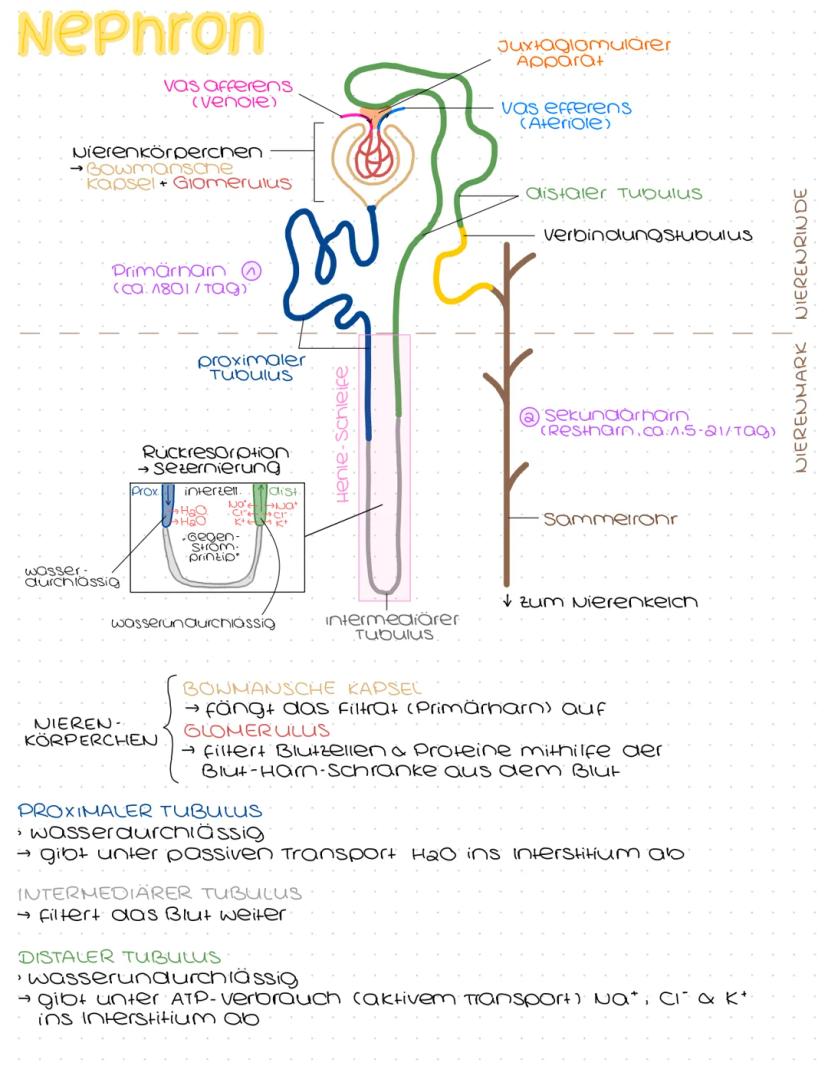 Nephron
Juxtaglomulärer
Apparat
Vas afferens
(Venole)
Vas efferens
(Ateriole)
Nierenkörperchen
→ Bowmansche
Kapsel + Glomerulus
distaler Tubulus
Verbindungstubulus
NIERENRINDE
Primärharn ①
(ca. 180l / Tag)
proximaler
Tubulus
Henle-Schleife
NIERENMARK
② Sekundärharn
(Restharn, ca. 1.5-2l/Tag)
Rückresorption
→ Sezernierung
Prox. interzell. dist.
→ H2O Na+ → Na+
→ H2O Cl- → Cl-
K+ → K+
"Gegen-
strom-
prinzip"
wasser-
durchlässig
wasserundurchlässig
Sammelrohr
intermediärer
Tubulus
↓ zum Nierenkelch
NIEREN-
KÖRPERCHEN
BOWMANSCHE KAPSEL
→ fängt das Filtrat (Primärharn) auf
GLOMERULUS
→ filtert Blutzellen & Proteine mithilfe der
Blut-Harn-Schranke aus dem Blut
PROXIMALER TUBULUS
› wasserdurchlässig
→ gibt unter passiven Transport H2O ins Interstitium ab
INTERMEDIÄRER TUBULUS
→ filtert das Blut weiter
DISTALER TUBULUS
› wasserundurchlässig
→ gibt unter ATP-Verbrauch (aktivem Transport) Na+, Cl- & K+
ins Interstitium ab